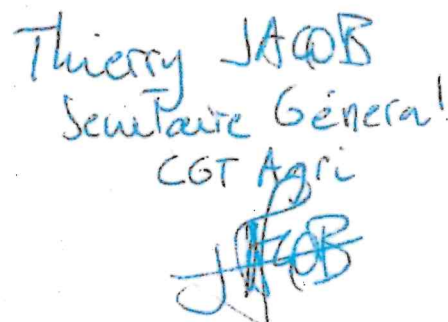 Thierry JACOB
Secrétaire Général
CGT Agri
JACOB